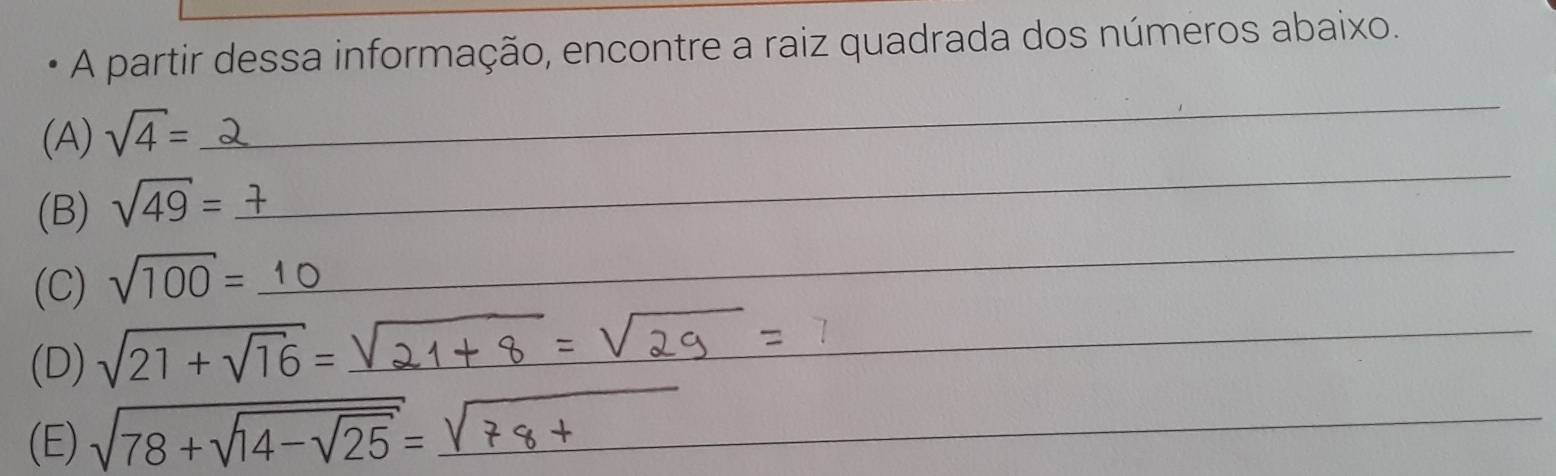 • A partir dessa informação, encontre a raiz quadrada dos números abaixo.
(A) √4 = 2
(B) √49 = 7
(C) √100 = 10
(D) √(21 + √16) = √(21 + 8) = √29 = ?
(E) √(78 + √(14 − √25)) = √(78 +